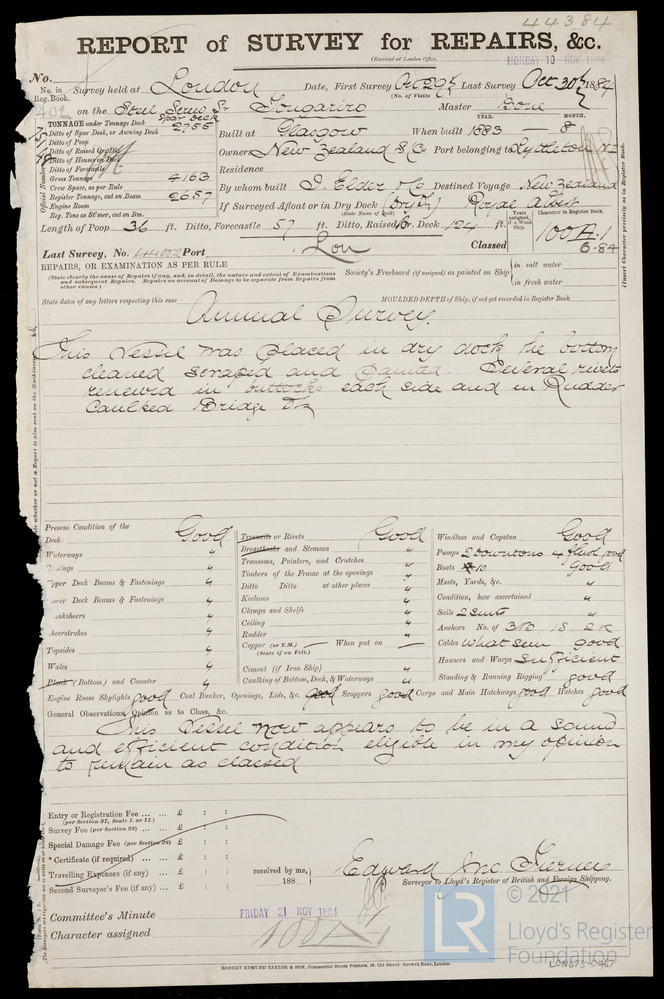 44384
REPORT of SURVEY for REPAIRS, &c.
(Received at London Office, MONDAY 10 NOV 1884
No.
No. in Reg. Book. Survey held at London Date, First Survey Oct 29th Last Survey Oct 30th 1884
(No. of Visits)
on the Steel Screw Sr Tongariro Master Bone
TONNAGE under Tonnage Deck
Spar Deck 2955
Ditto of Spar Deck, or Awning Deck
Ditto of Poop
Ditto of Raised Qr. Dk.
Ditto of Houses on Dk.
Ditto of Forecastle
Gross Tonnage 4163
Crew Space, as per Rule
Register Tonnage, cut on Beam 2657
Engine Room
Reg. Tons as St'mer, cut on Bm.
YEAR. MONTH.
Built at Glasgow When built 1883 — 8
Owners New Zealand S. Co Port belonging to Lyttleton NZ
Residence
By whom built J. Elder & Co Destined Voyage New Zealand
If Surveyed Afloat or in Dry Dock (Dry Dk) Royal Albert
(State Name of Dock)
Length of Poop 36 ft. Ditto, Forecastle 57 ft. Ditto, Raised Qr. Deck 124 ft.
Years assigned, if a Wood Ship.
Character in Register Book.
100 A.1
6-84
(Insert Character precisely as in Register Book.
Last Survey, No. 44002 Port Lon Classed
REPAIRS, OR EXAMINATION AS PER RULE
(State clearly the cause of Repairs if any, and, in detail, the nature and extent of Examinations and subsequent Repairs. Repairs on account of Damage to be separate from Repairs from other causes.)
Society's Freeboard (if assigned) as painted on Ship
in salt water
in fresh water
State dates of any letters respecting this case
MOULDED DEPTH of Ship, if not yet recorded in Register Book
Annual Survey.
This Vessel was placed in dry dock the bottom
cleaned scraped and painted. Several rivets
renewed in buttocks each side and in Rudder
Caulked Bridge Dk
Present Condition of the
Deck Good
Waterways "
"
Upper Deck Beams & Fastenings "
Lower Deck Beams & Fastenings "
"
"
Topsides "
Wales "
Plank (Bottom) and Counter "
Treenails or Rivets Good
Breasthooks and Stemson "
Transoms, Pointers, and Crutches "
Timbers of the Frame at the openings "
Ditto Ditto at other places "
Keelsons "
Clamps and Shelfs "
Ceiling "
Rudder "
Copper (or Y.M.) — When put on —
(State if on Felt.)
Cement (if Iron Ship) "
Caulking of Bottom, Deck, & Waterways "
Windlass and Capstan Good
Pumps 2 Downtons 4
Boats 10 Good
Masts, Yards, &c. "
Condition, how ascertained "
Sails 2 Suits "
Anchors No. of 3B 1S 2K
Cables what seen good
Hawsers and Warps Sufficient
Standing & Running Rigging good
Engine Room Skylights good Coal Bunker, Openings, Lids, &c. good Scuppers good Cargo and Main Hatchways good Hatches good
General Observations, Opinion as to Class, &c.
This Vessel now appears to be in a sound
and efficient condition eligible in my opinion
to remain as classed
Entry or Registration Fee ... ... £ : :
(per Section 27, Scale I. or II.)
Survey Fee (per Section 28) ... £ : :
Special Damage Fee (per Section 28) £ : :
* Certificate (if required) ... ... £ : :
Travelling Expenses (if any) ... £ : :
Second Surveyor's Fee (if any) ... £ : :
received by me,
188
Edward
Surveyor to Lloyd's Register of British and Foreign Shipping.
Committee's Minute FRIDAY 21 NOV 1884
Character assigned 100 A1
ROBERT EDMUND TAYLOR & SON, Commercial Steam Printers, 19, Old Street, Goswell Road, London.
LR
© 2021
Lloyd's Register
Foundation
LON673-0467